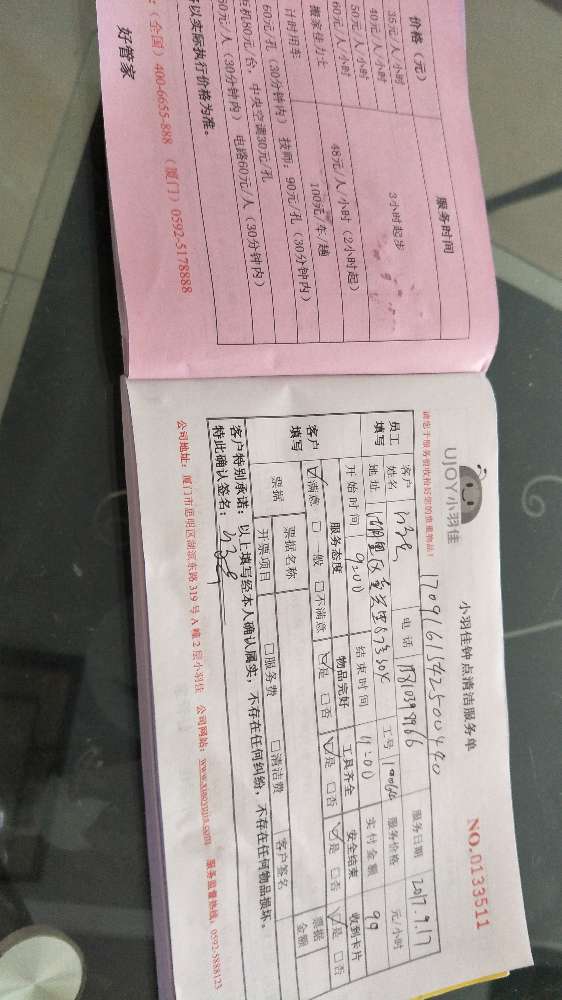 服务时间
价格（元）
35元/人/小时
40元/人/小时
50元/人/小时
60元/人/小时
3小时起步
搬家佳力士
48元/人/小时（2小时起）
计时用车
100元/车/趟
60元/孔（30分钟内）
90元/孔（30分钟内）
机80元/台，中央空调30元/孔
60元/人（30分钟内）
电路60元/人（30分钟内）
以实际执行价格为准。
（全国）400-6655-888 （厦门）0592-5178888
好管家
UJOY小羽佳
小羽佳钟点清洁服务单
NO.0133511
员工填写
客户姓名
电话
服务日期
2017.9.17
地址
工号
服务价格
元/小时
开始时间
9:00
结束时间
11:00
实付金额
99
客户填写
服务态度
物品完好
工具齐全
安全结束
收到卡片
满意
一般
不满意
是
否
是
否
是
否
是
否
票据
票据名称
票据金额
开票项目
服务费
清洁费
客户签名
客户特别承诺：以上填写经本人确认属实，不存在任何纠纷，不存在任何物品损坏。
特此确认签名：
公司地址：厦门市思明区湖滨东路319号A幢2层小羽佳 公司网站：www.xiaoyujia.com 服务监督热线：0592-5888123